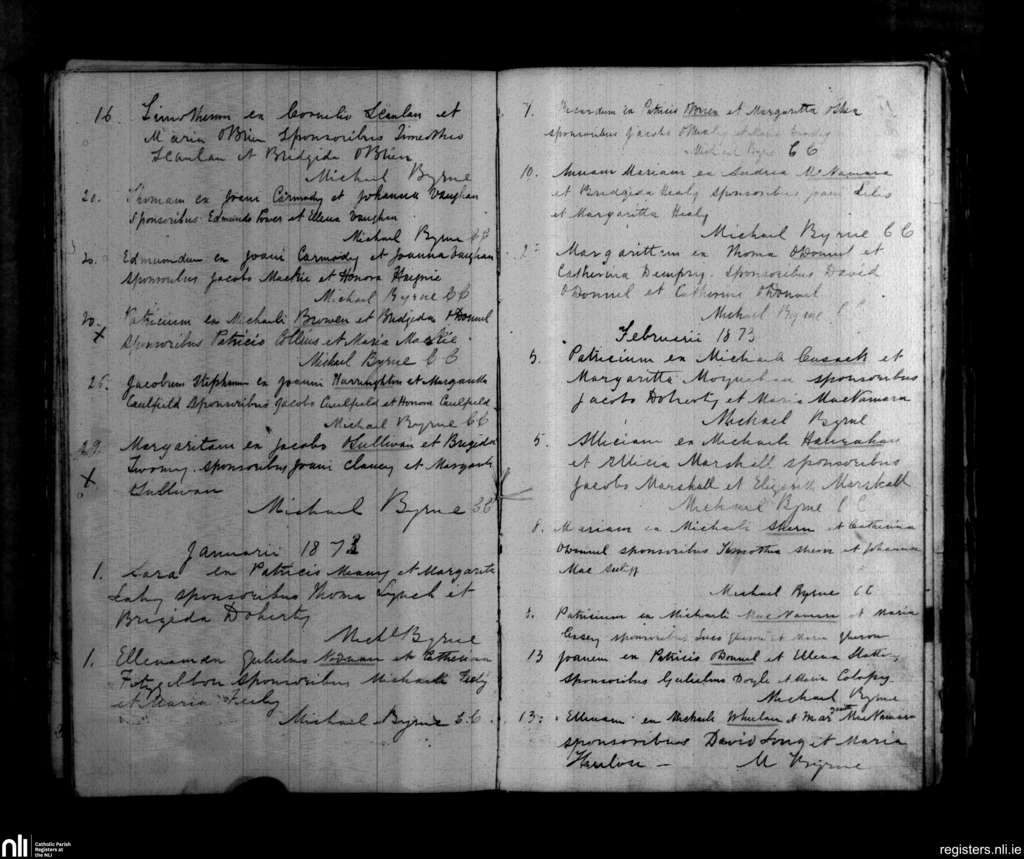 16. Timotheum ex Cornelio Scanlan et
Maria OBrien Sponsoribus Timotheo
Scanlan et Bridgida OBrien
Michael Byrne
20. Thomam ex Joani Carmody et Johanna Vaughan
Sponsoribus Edmundo Power et Ellena Vaughan
Michael Byrne
20. Edmundum ex Joani Carmody et Joanna Vaughan
sponsoribus Jacobo Mackie et Honora
Michael Byrne CC
20. Patricium ex Michaeli Browen et Bridgida ODonnel
X sponsoribus Patricio Collins et Maria Mackie
Michael Byrne CC
25. Jacobum Stephanum ex Joanni Harrington et Margaretta
Caulfield Sponsoribus Jacobo Caulfield et Honora Caulfield
Michael Byrne CC
29. Margaritam ex Jacobo OSullivan et Brigida
X Twomy. sponsoribus Joani Clancy et Margarita
OSullivan
Michael Byrne CC
Januarii 1873
1. Sara ex Patricio Meany et Margarita
Leahy sponsoribus Thoma Lynch et
Brigida Doherty
Michl Byrne
1. Ellenam den Gulielmo Noonan et Catherina
Fitzgibbon sponsoribus Michaele Feely
et Maria Feely
Michael Byrne CC
7. ex Patricio et Margaritta OShea
sponsoribus Jacobo OHealy et Maria
Michael Byrne CC
10. Annam Mariam ex Andrea McNamara
et Bridgida Healy sponsoribus Joani
et Margaritta Healy
Michael Byrne CC
Margarittam ex Thoma ODonnel et
Catherina Dempsy. sponsoribus David
ODonnel et Catherine ODonnel
Michael Byrne CC
Februarii 1873
3. Patricium ex Michaele Cusack et
Margaritta sponsoribus
Jacobo Doherty et Maria MacNamara
Michael Byrne
5. Alliciam ex Michaele Hanrahan
et Allicia Marshall sponsoribus
Jacobo Marshall et Elizabeth Marshall
Michael Byrne CC
8. Mariam ex Michaele Ahern et Catherina
ODonnel sponsoribus Timothea Ahern et Johanna
Mac
Michael Byrne CC
Patricium ex Michaeli MacNamara et Maria
Casey sponsoribus et Maria
13 Joanem ex Patricio ODonnel et Ellena Slattery
sponsoribus Gulielmo Doyle et Maria Colopy.
Michael Byrne
13. Ellenam ex Michaele Whelan et Margaritta MacNamara
sponsoribus David Long et Maria
Hanlon — M Byrne
nli
Catholic Parish
Registers at
the NLI
registers.nli.ie